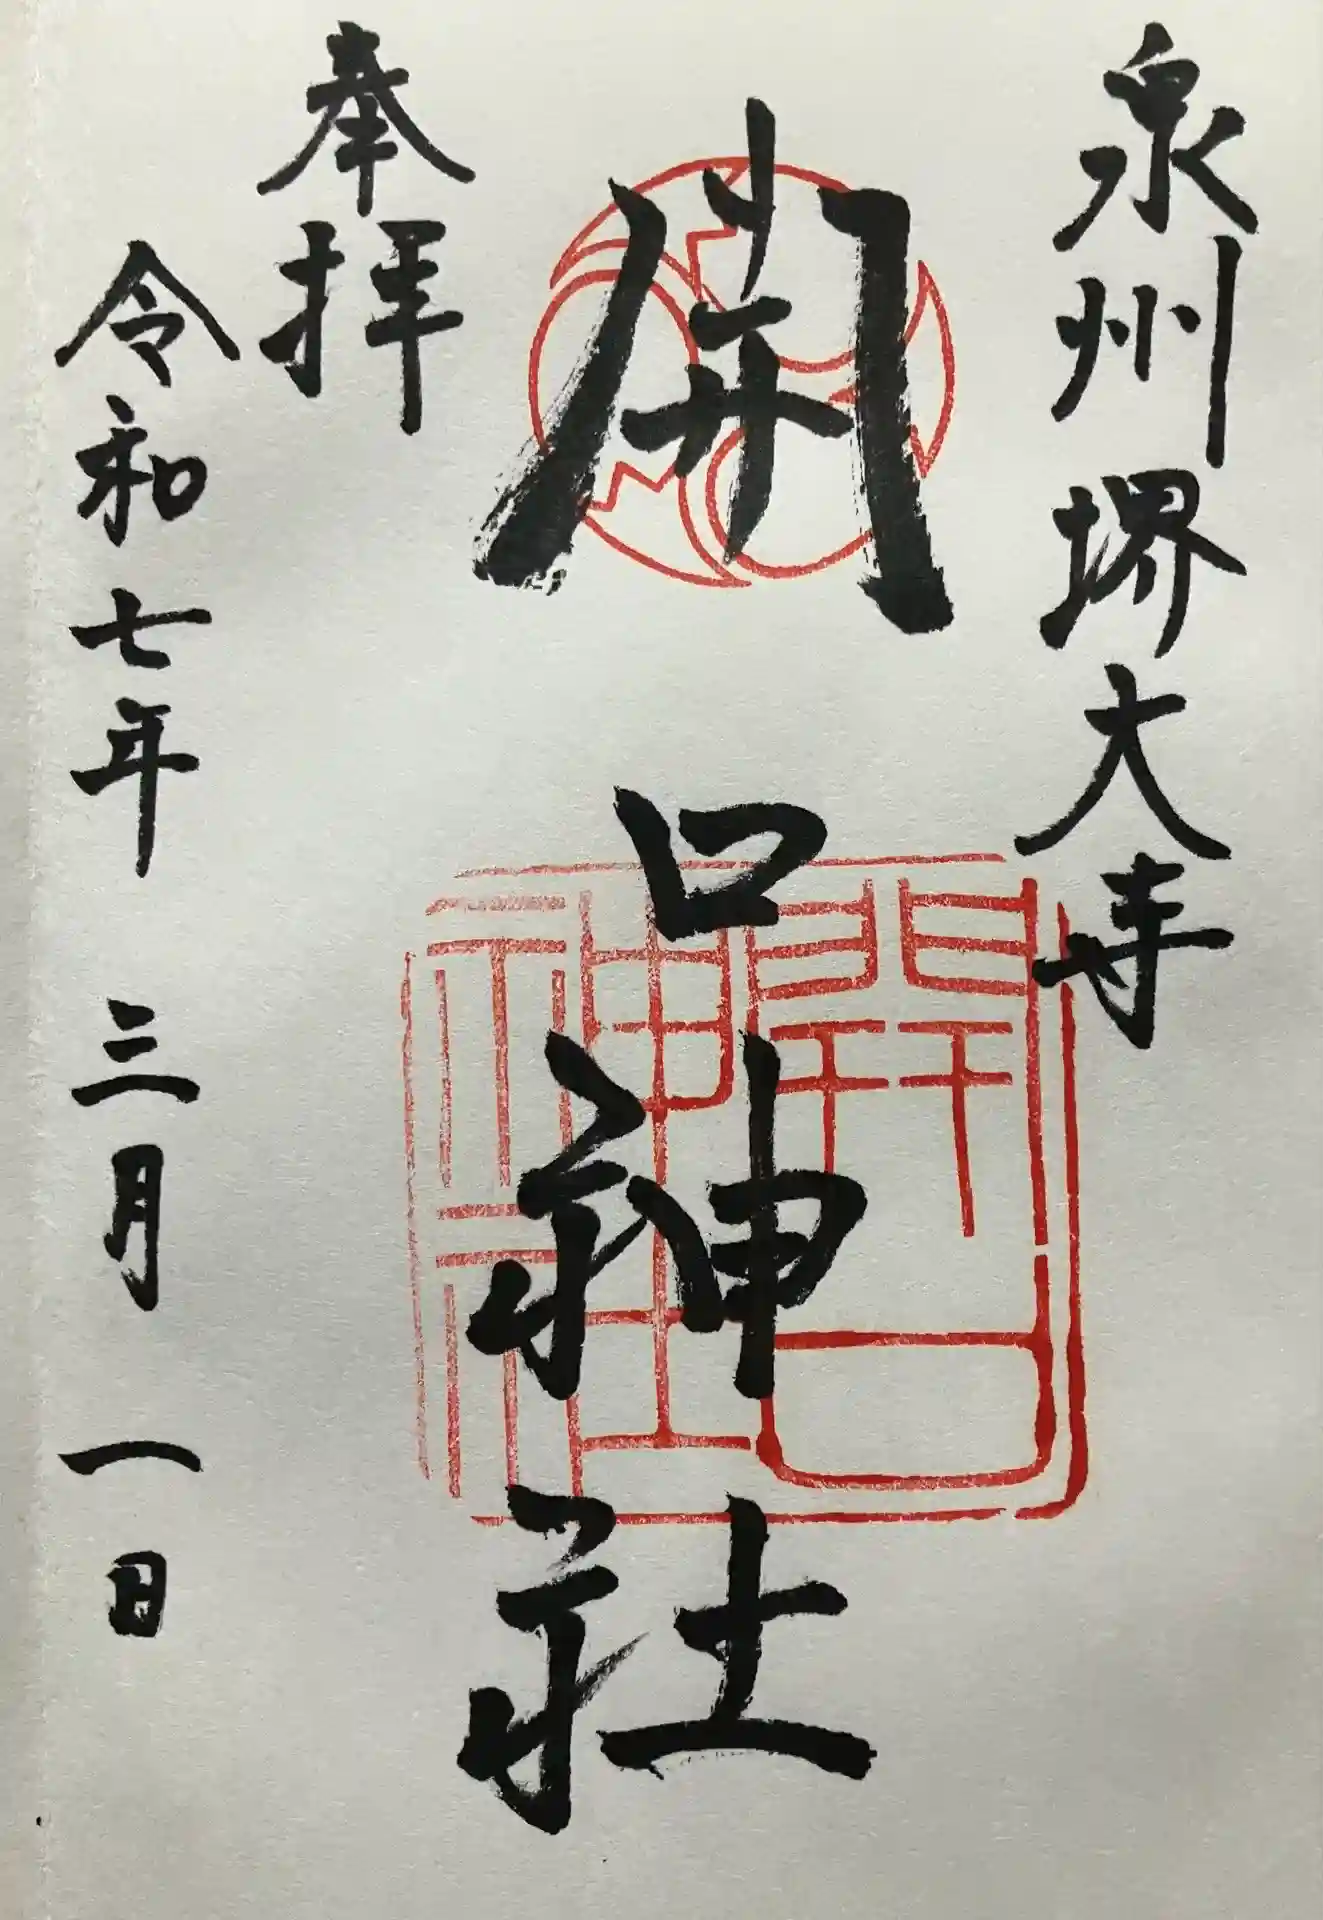 泉州堺大寺
開口神社
開口神社
奉拝
令和七年 三月 一日